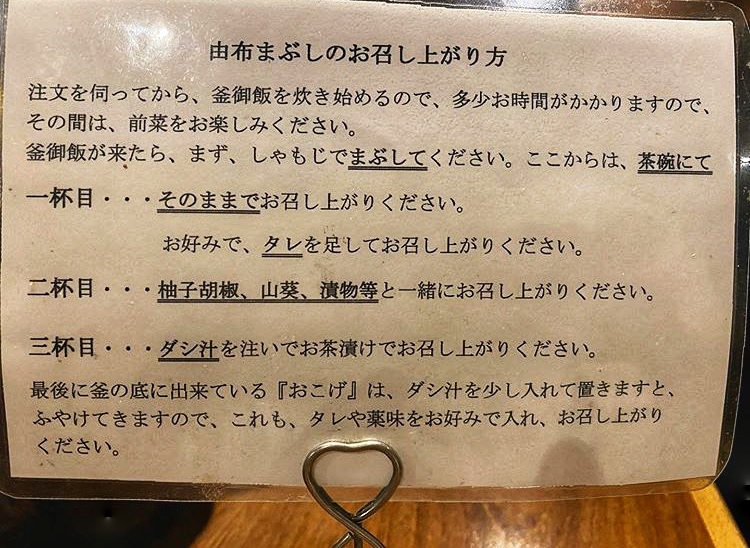 由布まぶしのお召し上がり方
注文を伺ってから、釜御飯を炊き始めるので、多少お時間がかかりますので、
その間は、前菜をお楽しみください。
釜御飯が来たら、まず、しゃもじでまぶしてください。ここからは、茶碗にて
一杯目・・・そのままでお召し上がりください。
お好みで、タレを足してお召し上がりください。
二杯目・・・柚子胡椒、山葵、漬物等と一緒にお召し上がりください。
三杯目・・・ダシ汁を注いでお茶漬けでお召し上がりください。
最後に釜の底に出来ている『おこげ』は、ダシ汁を少し入れて置きますと、
ふやけてきますので、これも、タレや薬味をお好みで入れ、お召し上がり
ください。